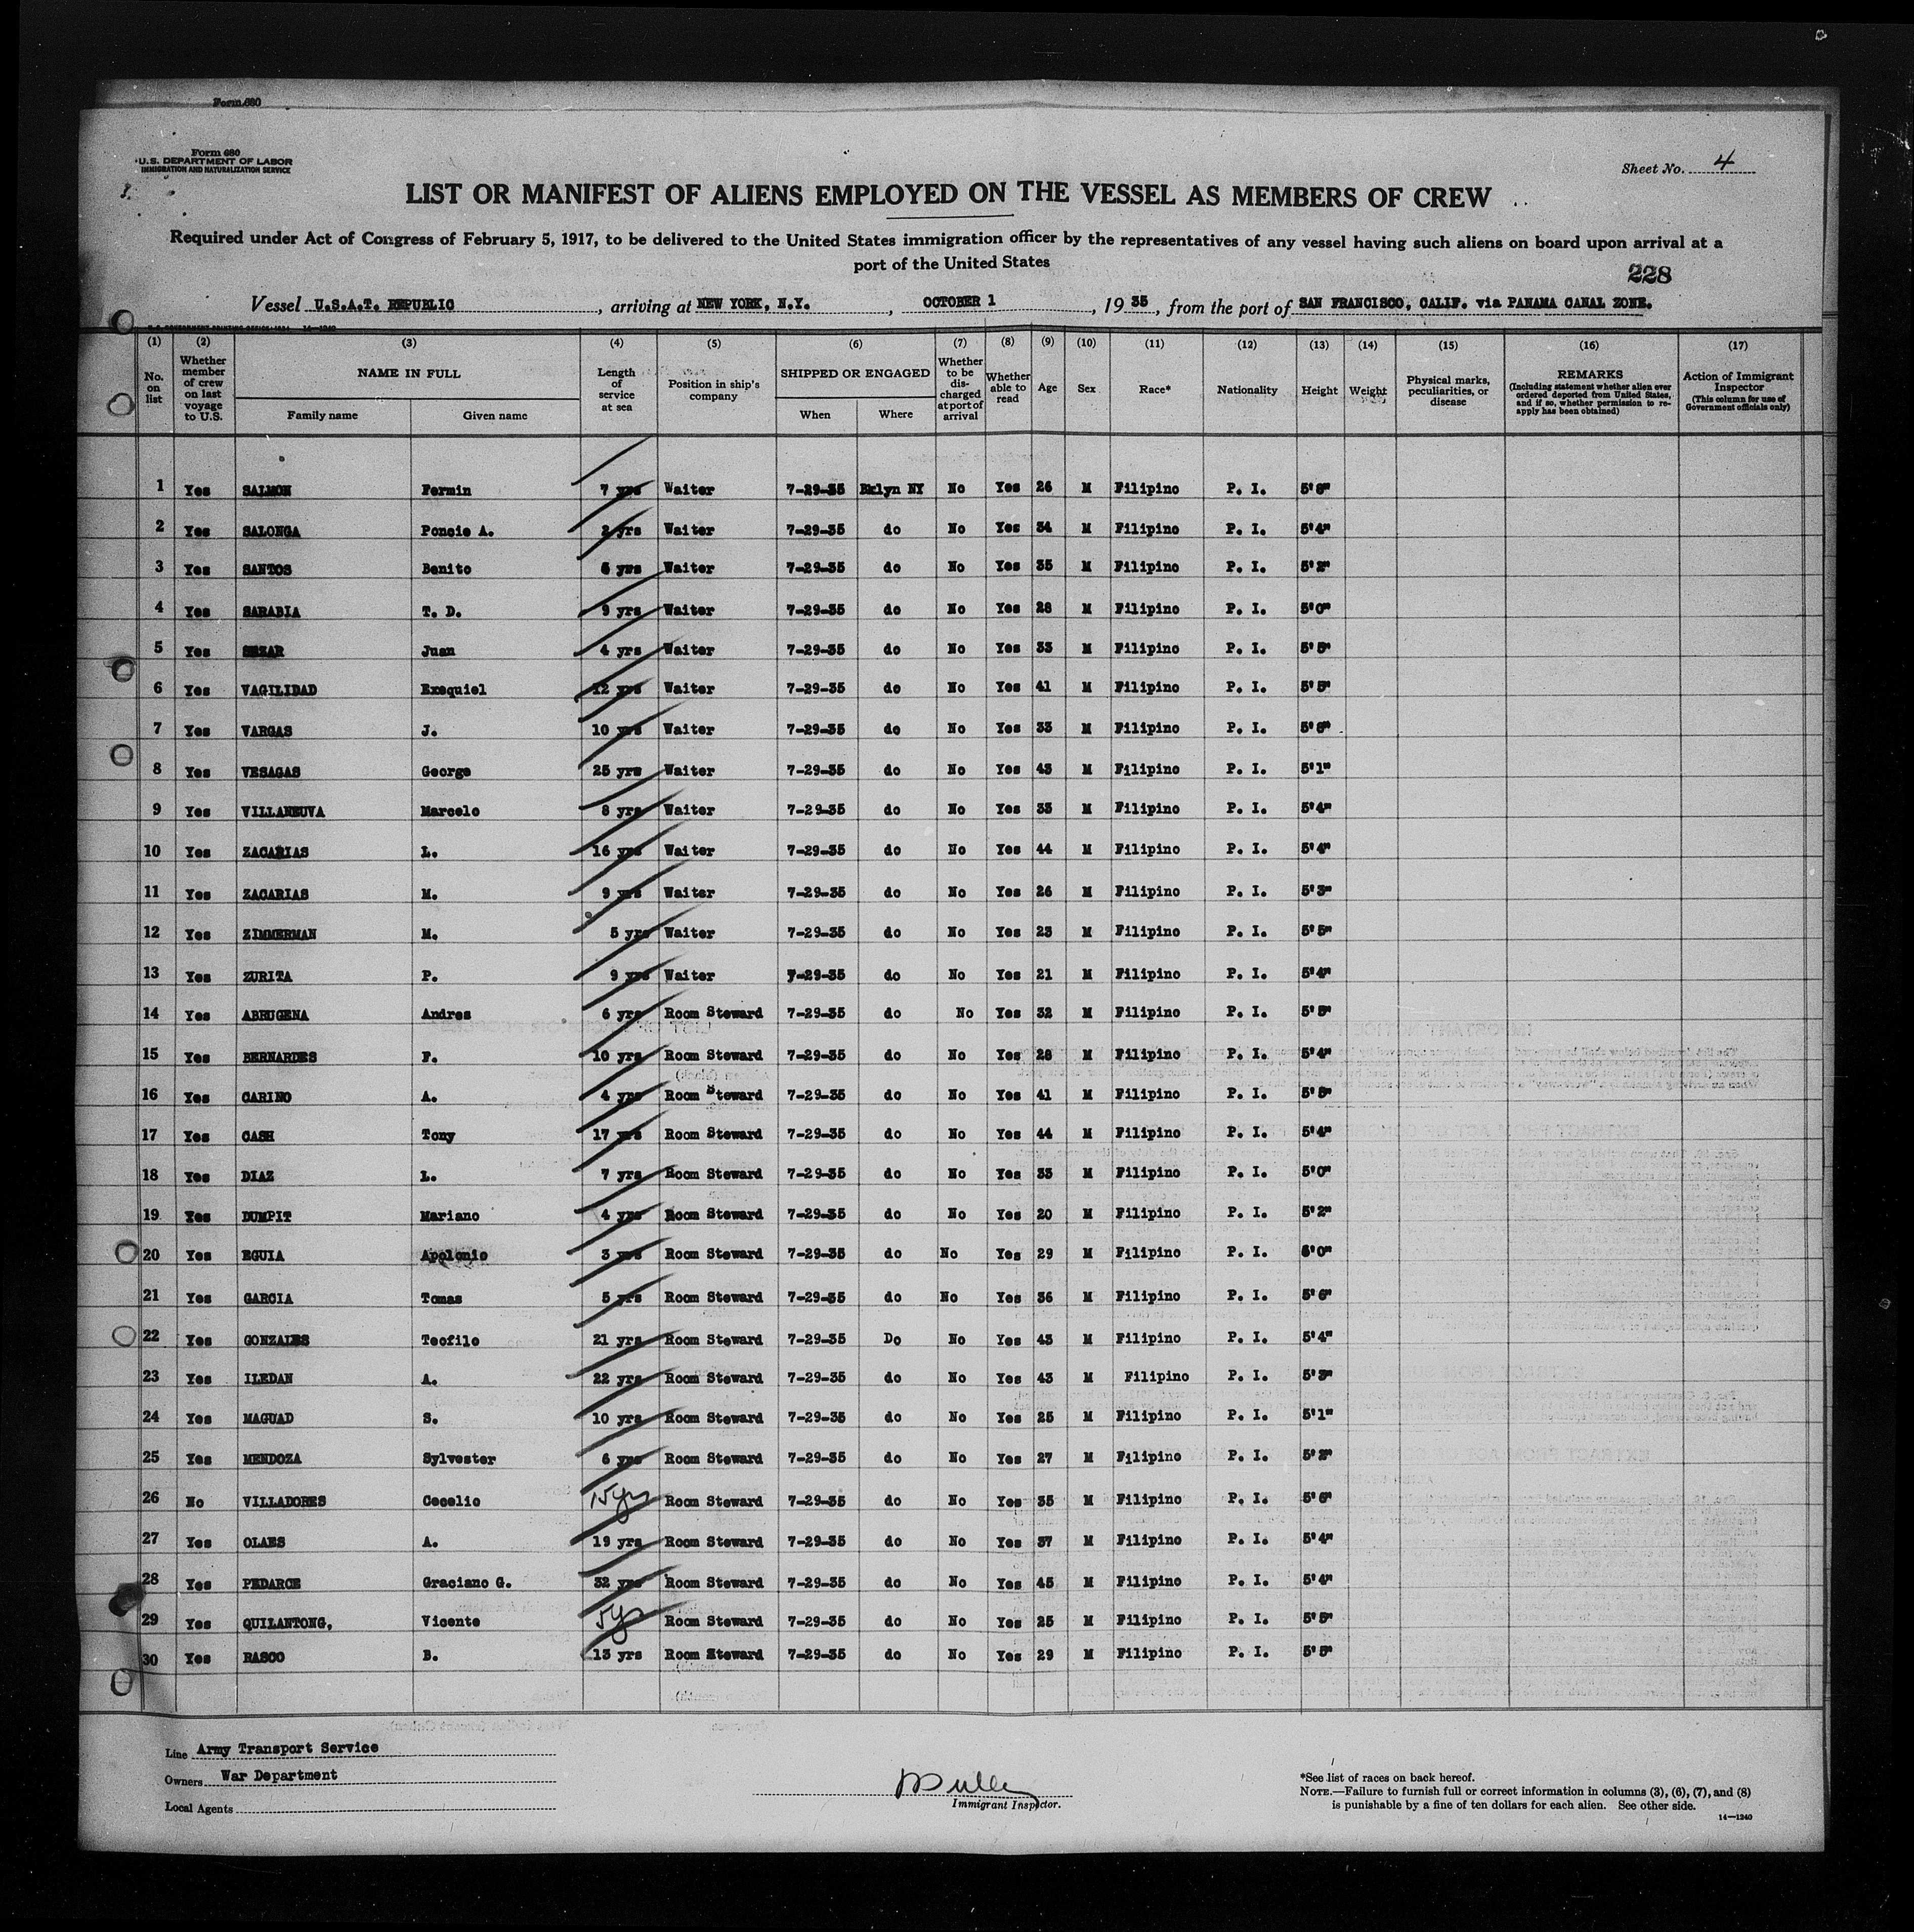 Form 680
Form 680
U.S. DEPARTMENT OF LABOR
IMMIGRATION AND NATURALIZATION SERVICE
Sheet No. 4
LIST OR MANIFEST OF ALIENS EMPLOYED ON THE VESSEL AS MEMBERS OF CREW
Required under Act of Congress of February 5, 1917, to be delivered to the United States immigration officer by the representatives of any vessel having such aliens on board upon arrival at a
port of the United States
228
Vessel U.S.A.T. REPUBLIC, arriving at NEW YORK, N.Y., OCTOBER 1, 1935, from the port of SAN FRANCISCO, CALIF. via PANAMA CANAL ZONE.
(1) (2) (3) (4) (5) (6) (7) (8) (9) (10) (11) (12) (13) (14) (15) (16) (17)
No. on list Whether member of crew on last voyage to U.S. NAME IN FULL Family name Given name Length of service at sea Position in ship's company SHIPPED OR ENGAGED When Where Whether to be discharged at port of arrival Whether able to read Age Sex Race* Nationality Height Weight Physical marks, peculiarities, or disease REMARKS (Including statement whether alien ever ordered deported from United States, and if so, whether permission to reapply has been obtained) Action of Immigrant Inspector (This column for use of Government officials only)
1 Yes SALMON Fermin 7 yrs Waiter 7-29-35 Bklyn NY No Yes 26 M Filipino P. I.
2 Yes SALONGA Poncie A. 2 yrs Waiter 7-29-35 do No Yes 34 M Filipino P. I. 5'4"
3 Yes SANTOS Benito yrs Waiter 7-29-35 do No Yes 35 M Filipino P. I. 5'2"
4 Yes SARABIA T. D. 9 yrs Waiter 7-29-35 do No Yes 28 M Filipino P. I. 5'0"
5 Yes Juan 4 yrs Waiter 7-29-35 do No Yes 33 M Filipino P. I. 5'5"
6 Yes VAGILIDAD Exequiel 12 yrs Waiter 7-29-35 do No Yes 41 M Filipino P. I. 5'5"
7 Yes VARGAS J. 10 yrs Waiter 7-29-35 do No Yes 33 M Filipino P. I.
8 Yes VESAGAS George 25 yrs Waiter 7-29-35 do No Yes 43 M Filipino P. I. 5'1"
9 Yes VILLANEUVA Marcelo 8 yrs Waiter 7-29-35 do No Yes 33 M Filipino P. I. 5'4"
10 Yes ZACARIAS L. 16 yrs Waiter 7-29-35 do No Yes 44 M Filipino P. I. 5'4"
11 Yes ZACARIAS M. 9 yrs Waiter 7-29-35 do No Yes 26 M Filipino P. I. 5'3"
12 Yes ZIMMERMAN M. 5 yrs Waiter 7-29-35 do No Yes 23 M Filipino P. I. 5'5"
13 Yes ZURITA P. 9 yrs Waiter 7-29-35 do No Yes 21 M Filipino P. I. 5'4"
14 Yes ABRUGENA Andres 6 yrs Room Steward 7-29-35 do No Yes 32 M Filipino P. I. 5'5"
15 Yes BERNARDES F. 10 yrs Room Steward 7-29-35 do No Yes 28 M Filipino P. I. 5'4"
16 Yes CARINO A. 4 yrs Room Steward 7-29-35 do No Yes 41 M Filipino P. I. 5'5"
17 Yes CASH Tony 17 yrs Room Steward 7-29-35 do No Yes 44 M Filipino P. I. 5'4"
18 Yes DIAZ L. 7 yrs Room Steward 7-29-35 do No Yes 33 M Filipino P. I. 5'0"
19 Yes DUMPIT Mariano 4 yrs Room Steward 7-29-35 do No Yes 20 M Filipino P. I. 5'2"
20 Yes EGUIA Apolonio 3 yrs Room Steward 7-29-35 do No Yes 29 M Filipino P. I.
21 Yes GARCIA Tomas 5 yrs Room Steward 7-29-35 do No Yes 36 M Filipino P. I. 5'6"
22 Yes GONZALES Teofilo 21 yrs Room Steward 7-29-35 Do No Yes 43 M Filipino P. I. 5'4"
23 Yes ILEDAN A. 22 yrs Room Steward 7-29-35 do No Yes 43 M Filipino P. I. 5'3"
24 Yes MAGUAD S. 10 yrs Room Steward 7-29-35 do No Yes 25 M Filipino P. I. 5'1"
25 Yes MENDOZA Sylvester 6 yrs Room Steward 7-29-35 do No Yes 27 M Filipino P. I. 5'2"
26 No VILLADORES Cecelio 15 yrs Room Steward 7-29-35 do No Yes 35 M Filipino P. I. 5'6"
27 Yes OLAES A. 19 yrs Room Steward 7-29-35 do No Yes 37 M Filipino P. I. 5'4"
28 Yes PEDARCE Graciano G. 32 yrs Room Steward 7-29-35 do No Yes 45 M Filipino P. I. 5'4"
29 Yes QUILANTONG, Vicente 5 y Room Steward 7-29-35 do No Yes 25 M Filipino P. I. 5'5"
30 Yes RASCO B. 13 yrs Room Steward 7-29-35 do No Yes 29 M Filipino P. I. 5'5"
Line Army Transport Service
Owners War Department
Local Agents
Immigrant Inspector.
*See list of races on back hereof.
NOTE.—Failure to furnish full or correct information in columns (3), (6), (7), and (8)
is punishable by a fine of ten dollars for each alien. See other side.
14—1240